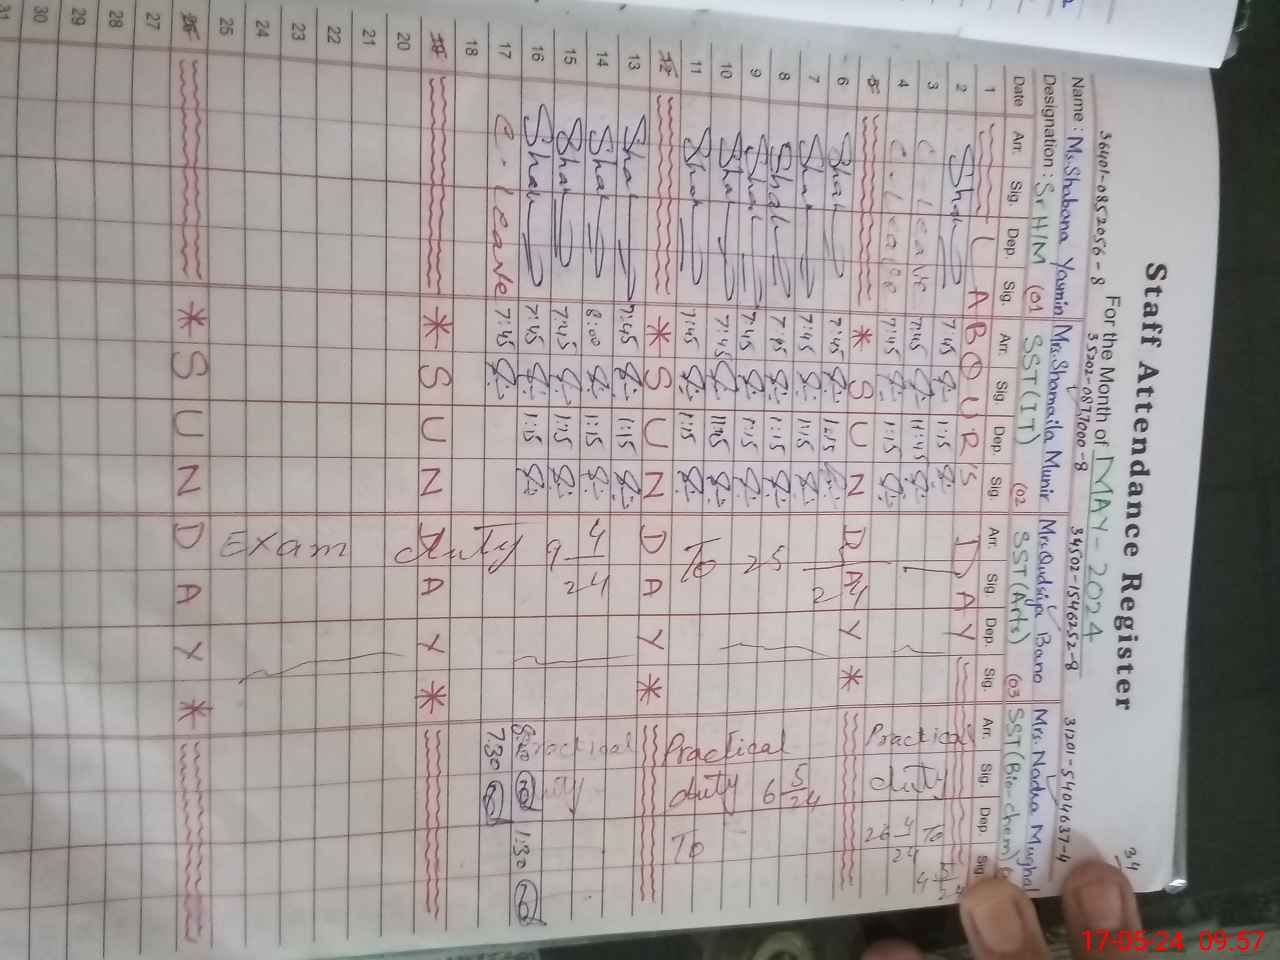 34
Staff Attendance Register
For the Month of MAY-2024
36401-0852056-8 35202-0877000-8 34502-1546252-8 31201-5404637-4
Name : Ms. Shabana Yasmin Mrs. Shamaila Munir Mrs. Qudsiya Bano Mrs. Nadra Mughal
Designation : Sr H/M (01 SST (IT) (02 SST (Arts) (03 SST (Bio-chem)
Date Arr. Sig. Dep. Sig. Arr. Sig. Dep. Sig. Arr. Sig. Dep. Sig. Arr. Sig. Dep. Sig.
1 LABOUR'S DAY
2 Shab 7:45 1:15
3 C-Leave 7:45 11:45 Practical duty To
4 C-Leave 7:45 1:15 26 4/24
5 * SUNDAY *
6 Shab 7:45 12:15
7 Shab 7:45 1:15
8 Shab 7:45 1:15 5/24
9 Shab 7:45 1:15 25 6
10 Shab 7:45 11:45
11 Shab 7:45 1:15 To Practical duty To
12 * SUNDAY *
13 Shab 7:45 1:15
14 Shab 8:00 1:15 4/24
15 Shab 7:45 1:15 9
16 Shab 7:45 1:15 Practical duty 1:30
17 C-Leave 7:45 Duty 7:30
18
19 * SUNDAY *
20
21
22
23
24
25 Exam
26 * SUNDAY *
27
28
29
30
31
17-05-24 09:57